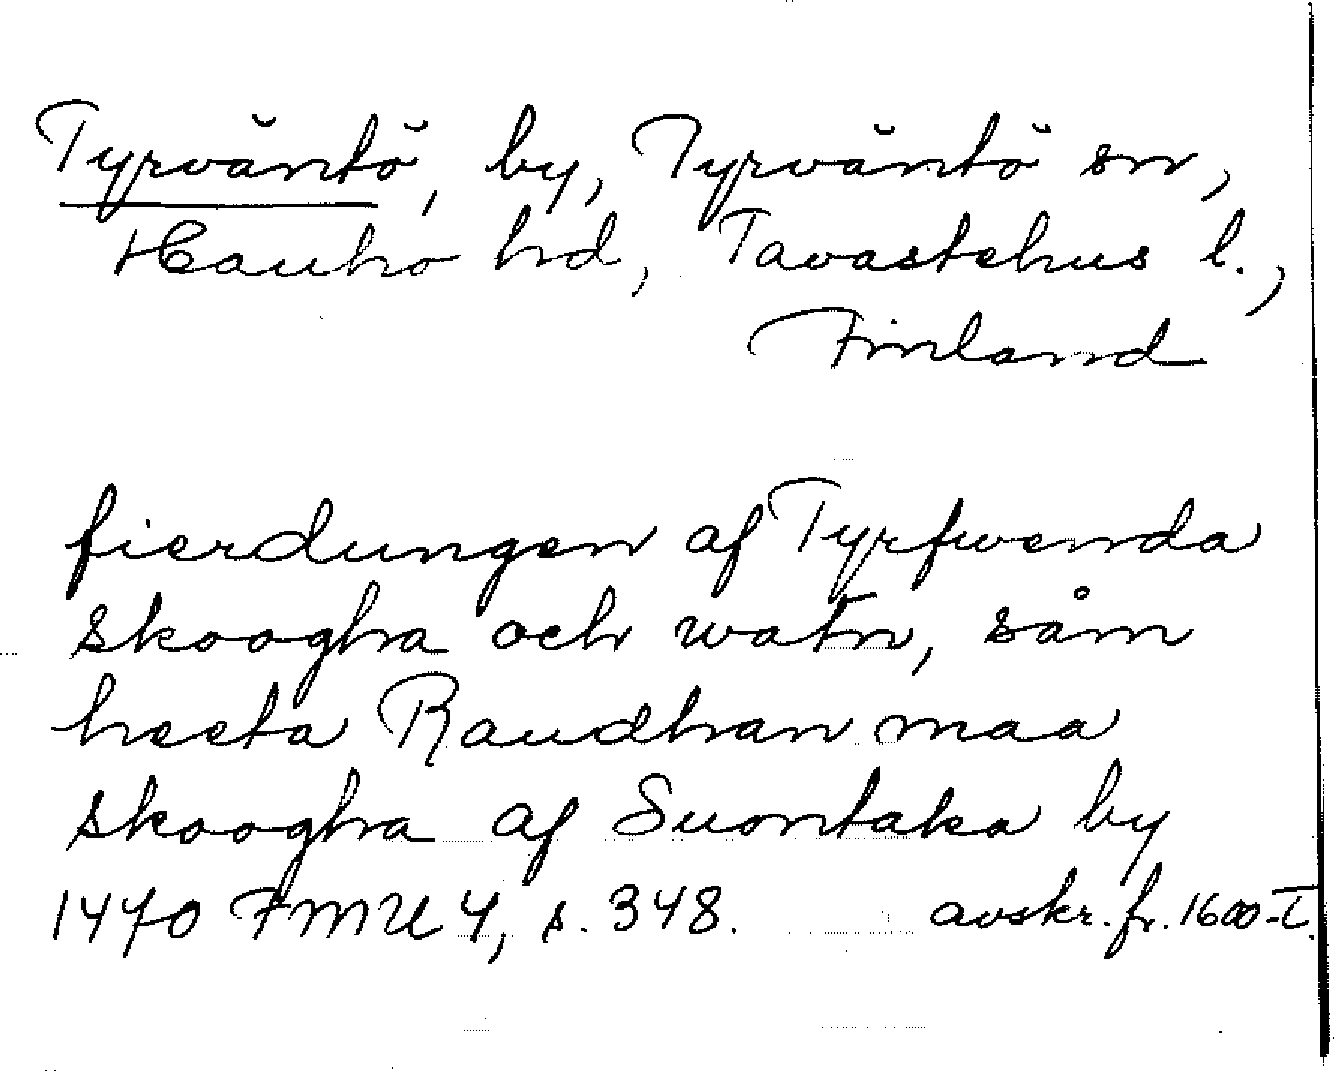 Tyrväntö, by, Tyrväntö sn,
Hauho hd, Tavastehus l.,
Finland
fierdungen af Tyrfwenda
skoogha och watn, såm
heeta Raudhan maa
skoogha af Suontaka by
1470 FMU 4, s. 348. avskr. fr. 1600-T.